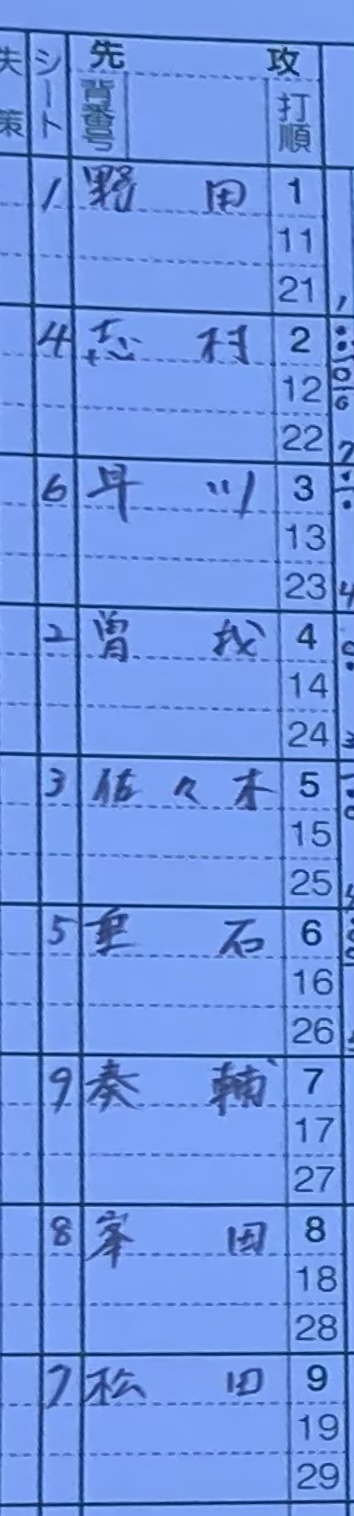 失策 シート 先攻 背番号 打順
1 野田 1
11
21
4 志村 2
12
22
6 早川 3
13
23
2 曽我 4
14
24
3 佐々木 5
15
25
5 垂石 6
16
26
9 奏輔 7
17
27
8 峯田 8
18
28
7 松田 9
19
29